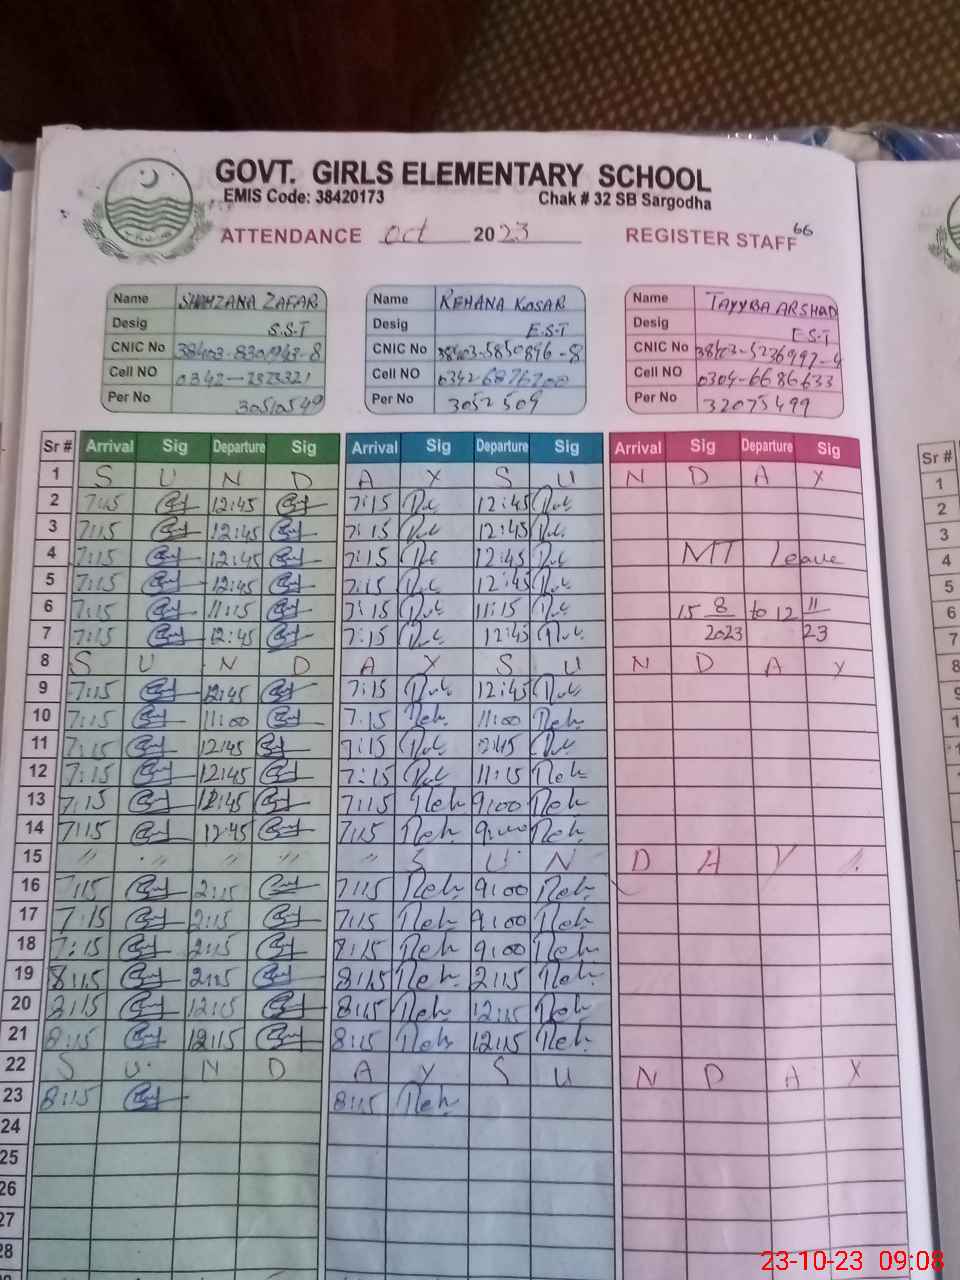 GOVT. GIRLS ELEMENTARY SCHOOL
EMIS Code: 38420173 Chak # 32 SB Sargodha
66
ATTENDANCE Oct 2023 REGISTER STAFF
Name SHAHZANA ZAFAR Name REHANA KOSAR Name TAYYBA ARSHAD
Desig S.S.T Desig E.S.T Desig E.S.T
CNIC No CNIC No CNIC No
Cell NO Cell NO Cell NO 0304-6686633
Per No 30510549 Per No 3052509 Per No 32075499
Sr # Arrival Sig Departure Sig Arrival Sig Departure Sig Arrival Sig Departure Sig Sr #
1 S U N D A Y S U N D A Y 1
2 7:15 12:45 7:15 12:45 2
3 7:15 12:45 7:15 12:45 3
4 7:15 12:45 7:15 12:45 MT Leave 4
5 7:15 12:45 7:15 12:45 5
6 7:15 11:15 7:15 11:15 15 8 to 12 11 6
7 7:15 12:45 7:15 12:45 2023 23 7
8 S U N D A Y S U N D A Y 8
9 7:15 12:45 7:15 12:45 9
10 7:15 11:00 7:15 Reh. 11:00 Reh.
11 7:15 12:45 7:15 12:45
12 7:15 12:45 7:15 11:15 Reh
13 7:15 12:45 7:15 Reh 9:00 Reh
14 7:15 12:45 7:15 Reh 9:00 Reh
15 " " " " " S U N D A Y
16 7:15 2:15 7:15 Reh 9:00 Reh
17 7:15 2:15 7:15 Reh 9:00 Reh
18 7:15 2:15 8:15 Reh 9:00 Reh
19 8:15 2:15 8:15 Reh 2:15 Reh
20 8:15 12:15 8:15 Reh 12:15 Reh
21 8:15 12:15 8:15 Reh 12:15 Reh
22 S U N D A Y S U N D A Y
23 8:15 8:15 Reh
24
25
26
27
28
23-10-23 09:08